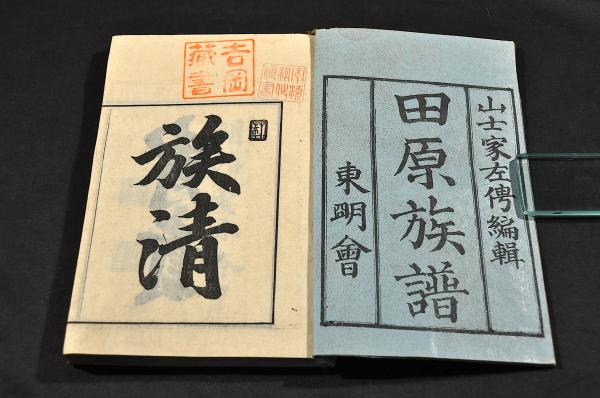 山士家左傳編輯
田原族譜
東明會
吉岡
藏書
族清